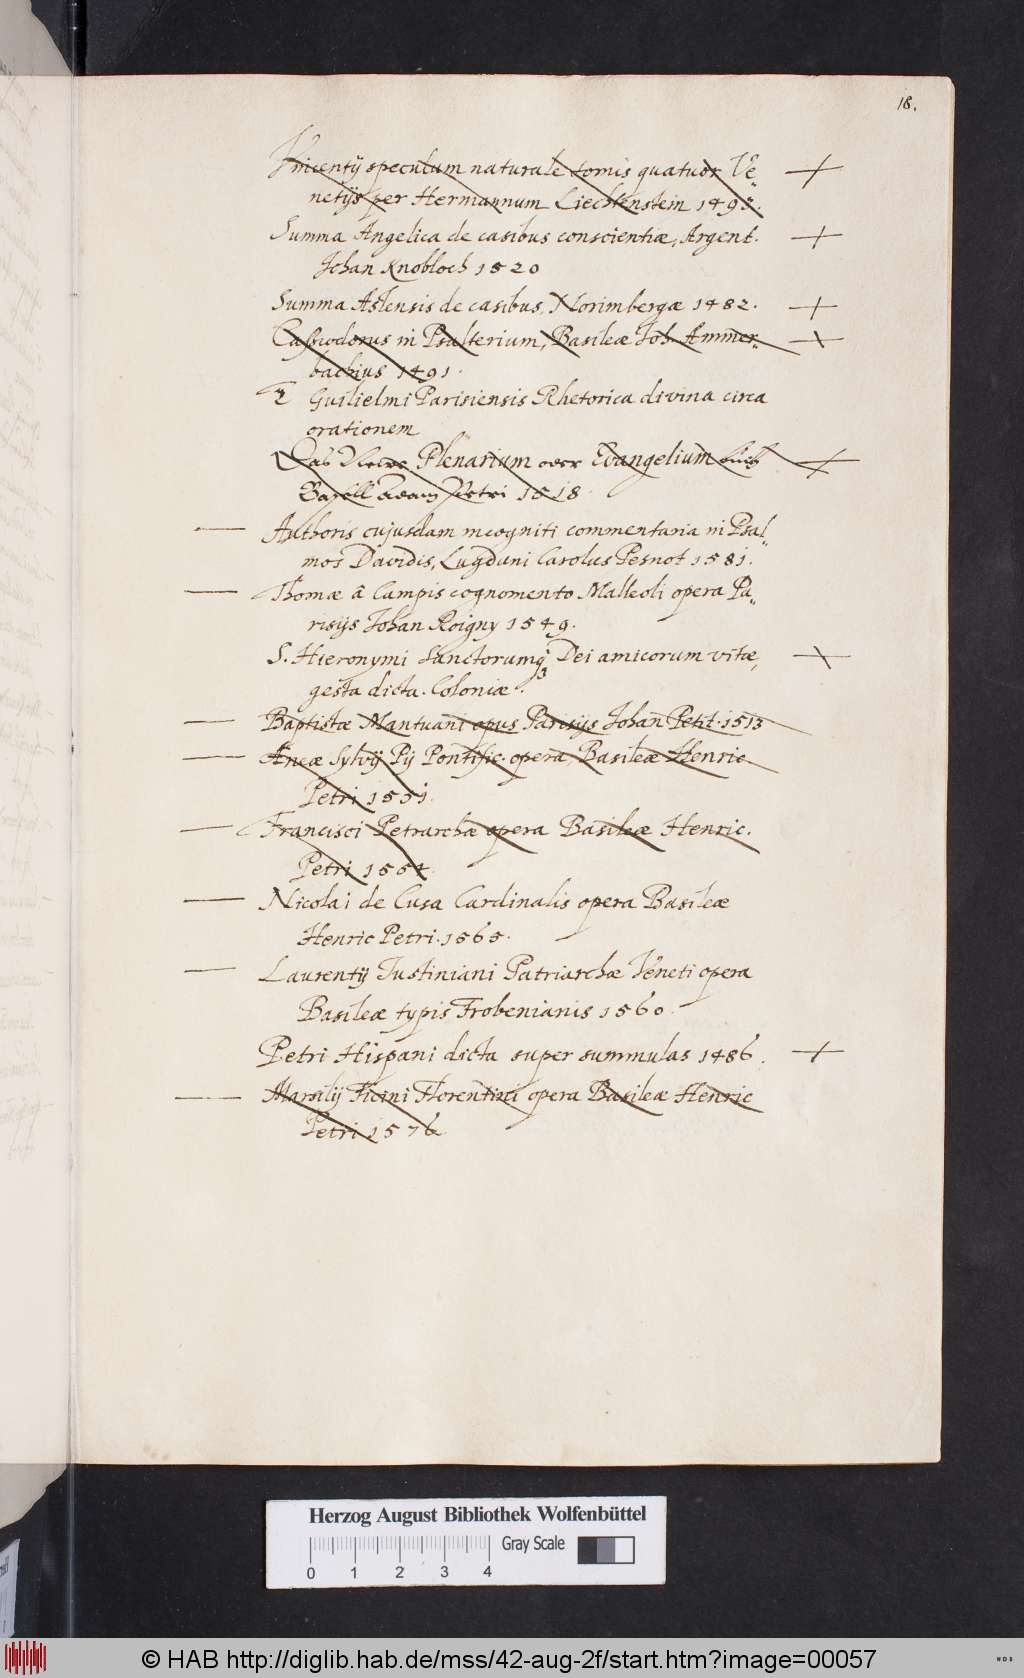 18.
Vincentij speculum naturale tomis quatuor Ve„
netijs per Hermannum Liechtenstein 1493.
Summa Angelica de casibus conscientiæ, Argent.
Johan Knobloch 1520
Summa Astensis de casibus, Norimbergæ 1482.
Cassiodorus in Psalterium, Basileæ Joh. Ammer„
bachius 1491.
Guilielmi Parisiensis Rhetorica divina circa
orationem
Das Newe Plenarium oder Evangelium buch
Basell Adam Petri 1518.
Authoris cujusdam incogniti commentaria in Psal„
mos Davidis, Lugduni Carolus Pesnot 1581.
Thomæ â Campis cognomento Malleoli opera Pa„
risijs Johan Roigny 1549.
S. Hieronymi Sanctorumq́ Dei amicorum vitæ,
gesta dicta. Coloniæ.
Baptistæ Mantuani opus Parisijs Johan Petit. 1513
Æneæ Sylvij Pij Pontific. opera, Basileæ Henric
Petri 1551.
Francisci Petrarchæ opera Basileæ Henric.
Petri 1554.
Nicolai de Cusa Cardinalis opera Basileæ
Henric Petri. 1565.
Laurentij Justiniani Patriarchæ Veneti opera
Basileæ typis Frobenianis 1560.
Petri Hispani dicta super summulas 1486.
Marsilij Ficini Florentini opera Basileæ Henric
Petri 1576
Herzog August Bibliothek Wolfenbüttel
Gray Scale
0 1 2 3 4
© HAB http://diglib.hab.de/mss/42-aug-2f/start.htm?image=00057